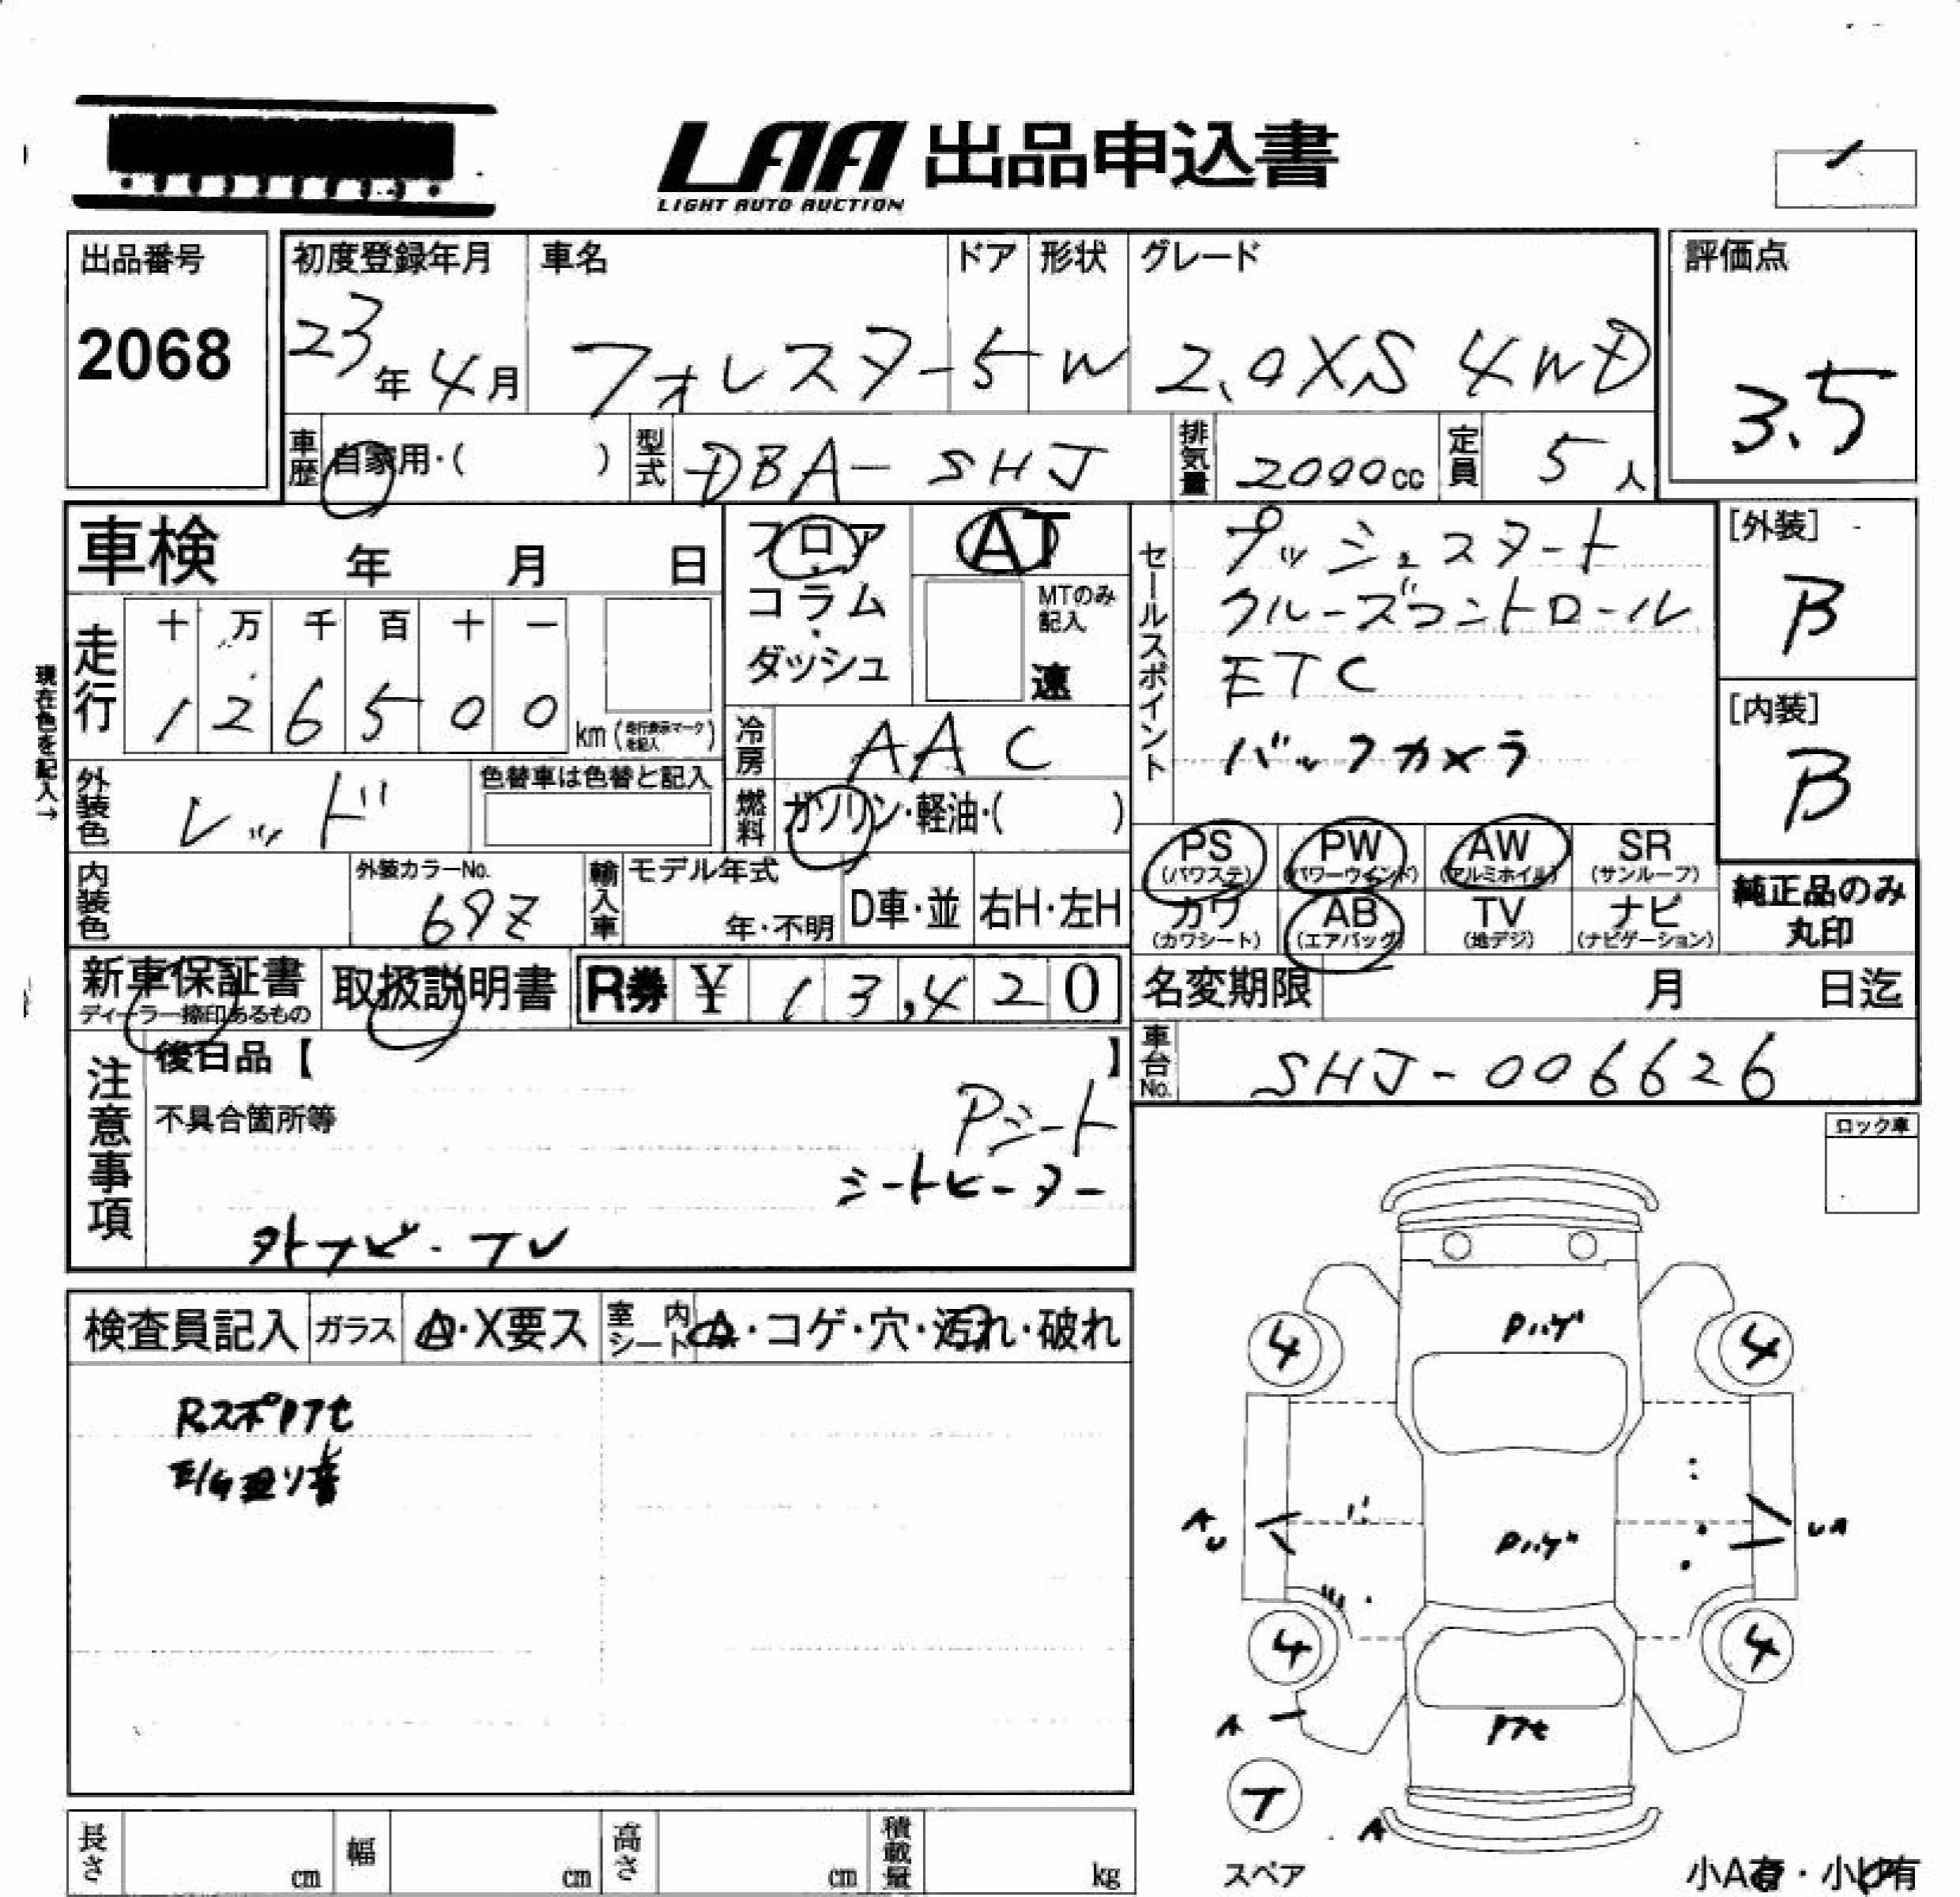 LAA 出品申込書
LIGHT AUTO AUCTION
出品番号
2068
初度登録年月
23年4月
車名
フォレスター
ドア
5
形状
W
グレード
2.0XS 4WD
評価点
3.5
車歴
自家用・( )
型式
DBA-SHJ
排気量
2000cc
定員
5人
車検 年 月 日
走行
十 万 千 百 十 一
1 2 6 5 0 0 km (走行表示マークを記入)
現在色を記入→
フロア・コラム・ダッシュ
AT
MTのみ記入
速
冷房
AAC
燃料
ガソリン・軽油・( )
セールスポイント
プッシュスタート
クルーズコントロール
ETC
バックカメラ
[外装]
B
[内装]
B
外装色
レッド
色替車は色替と記入
内装色
外装カラーNo.
69Z
輸入車
モデル年式
年・不明
D車・並
右H・左H
PS
(パワステ)
PW
(パワーウインド)
AW
(アルミホイル)
SR
(サンルーフ)
カワ
(カワシート)
AB
(エアバッグ)
TV
(地デジ)
ナビ
(ナビゲーション)
純正品のみ
丸印
新車保証書
ディーラー捺印あるもの
取扱説明書
R券 ¥ 13,420
名変期限 月 日迄
車台No.
SHJ-006626
注意事項
後日品【 】
不具合箇所等
Pシート
シートヒーター
外ナビ・TV
ロック車
検査員記入
ガラス
A・X要ス
室内シート
A・コゲ・穴・汚れ・破れ
RスポPアセ
Pハゲ
4
4
A
U
Pハゲ
UA
4
4
A
Pアセ
T
スペア
A
小A有・小U有
長さ cm
幅 cm
高さ cm
積載量 kg